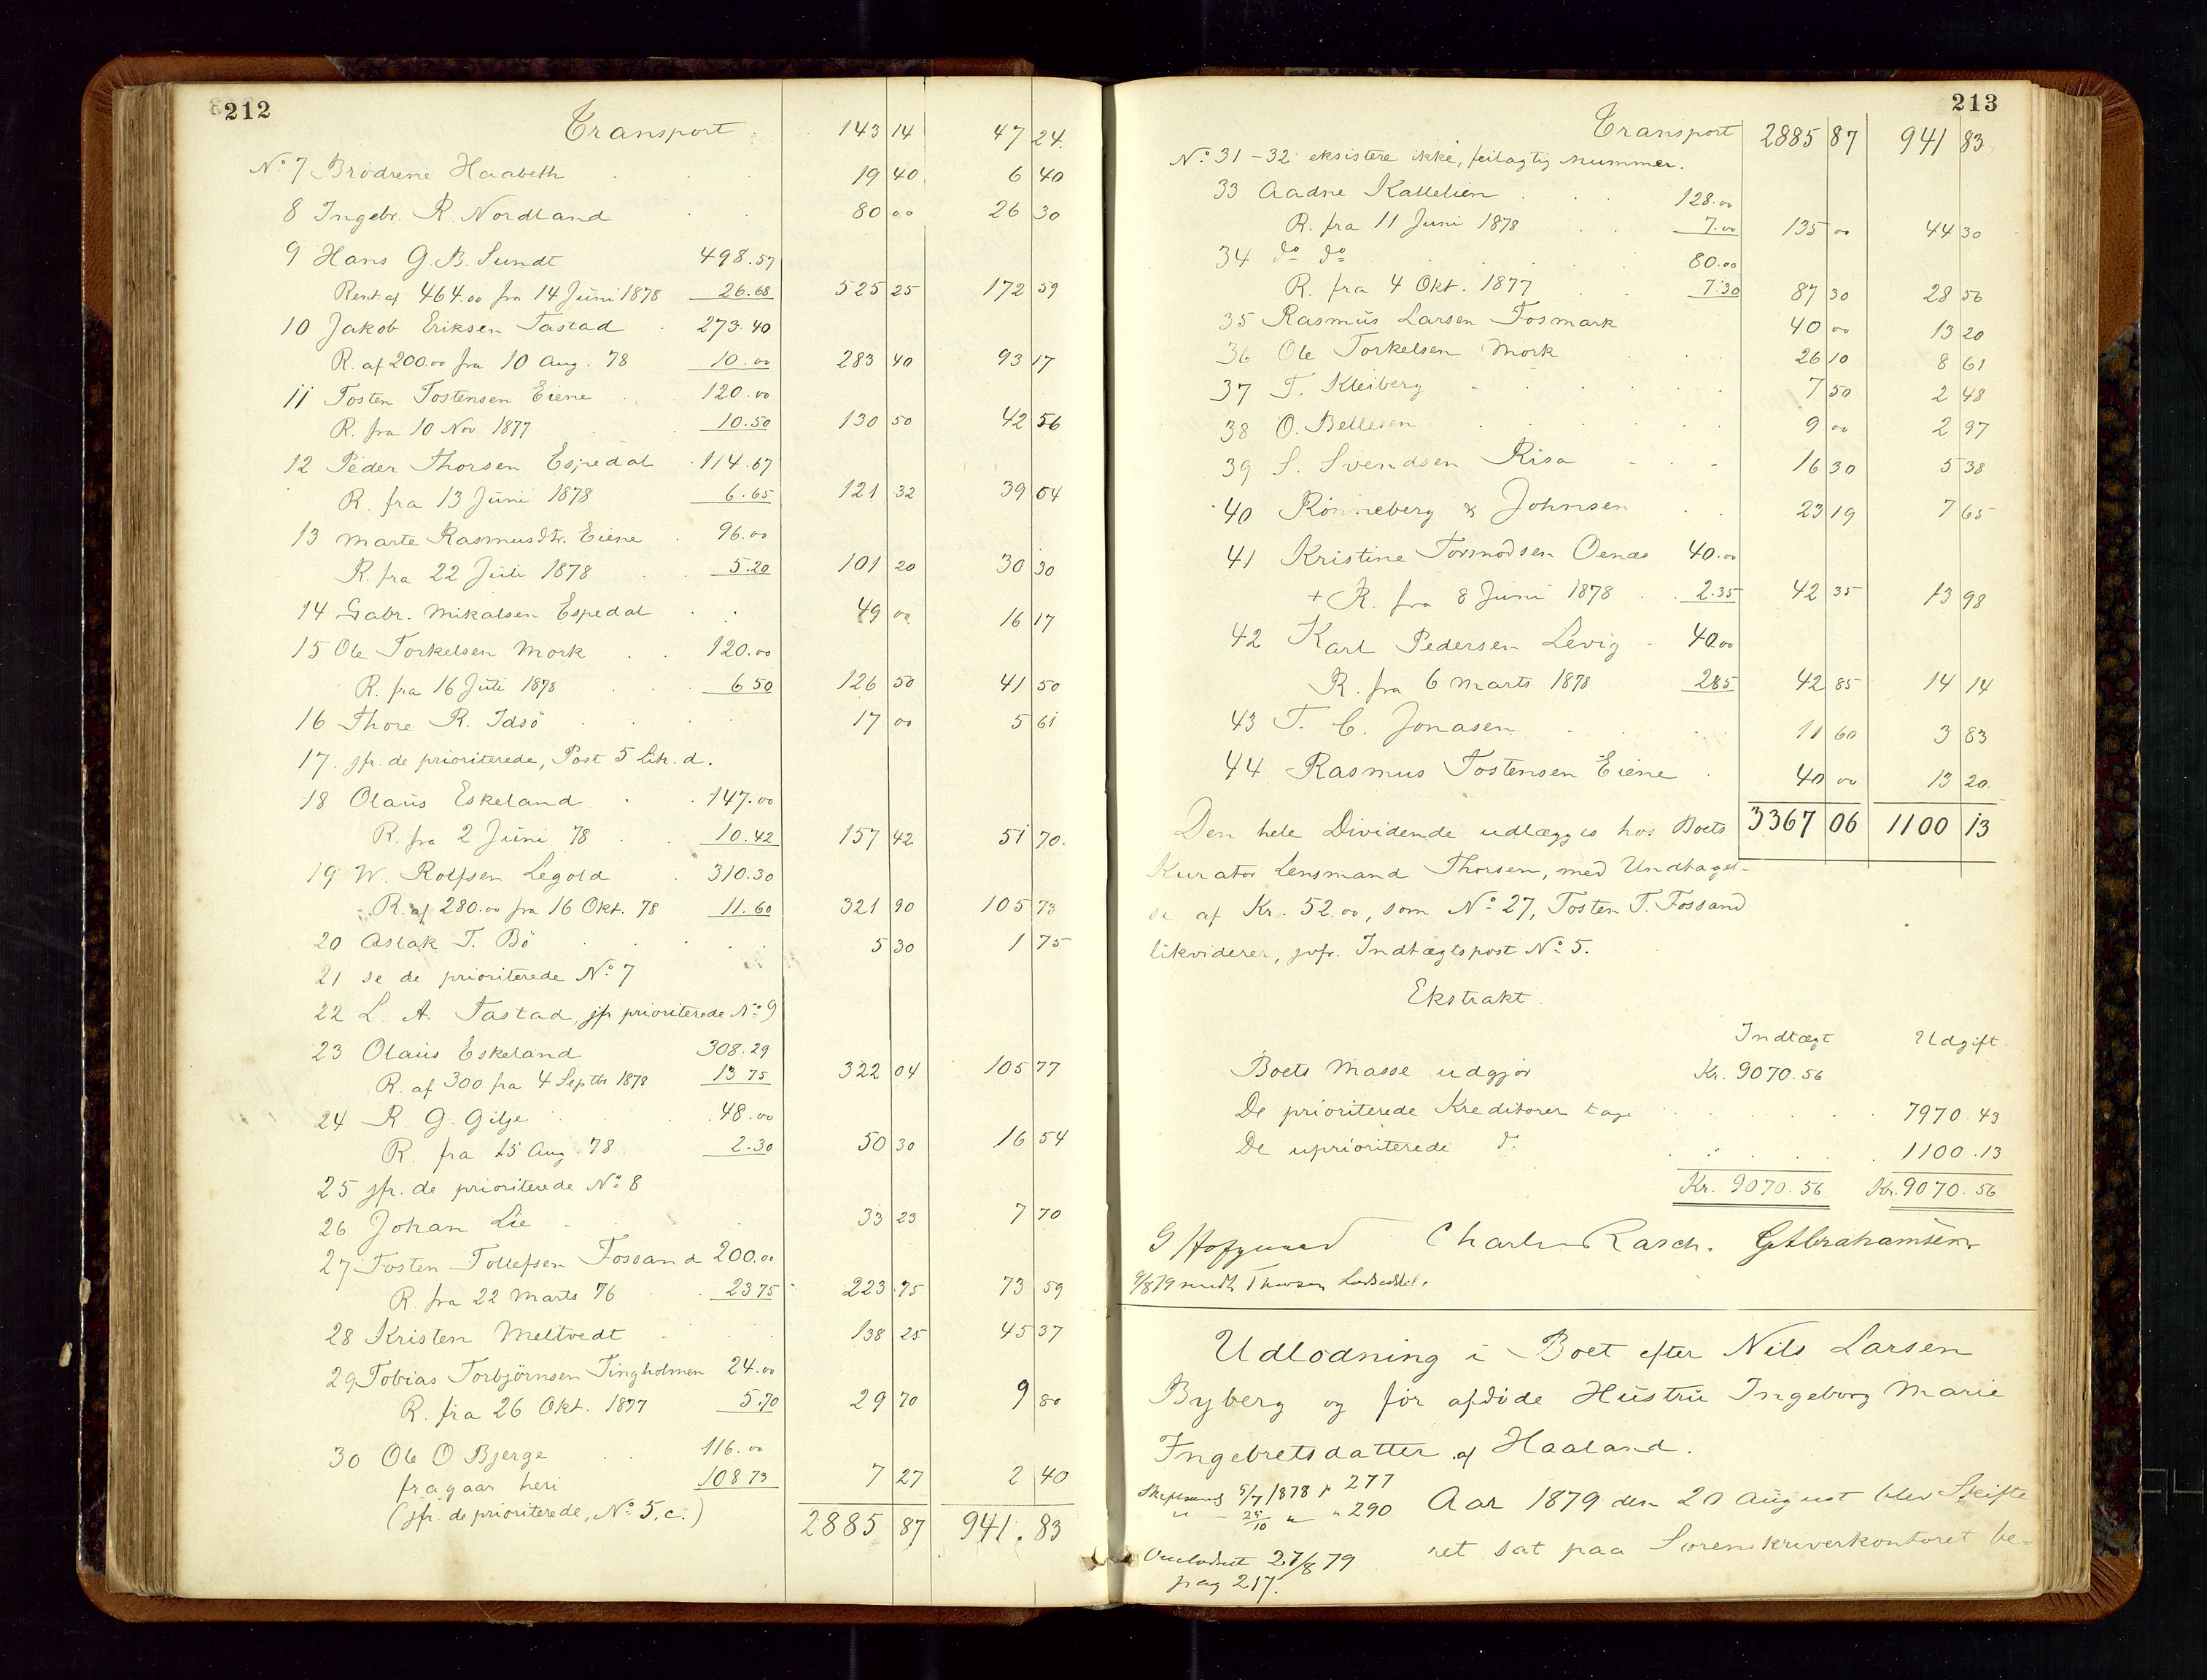 212
Transport 143 14 47 24.
No 7 Brødrene Haabeth 19 40 6 40
8 Ingebr. R. Nordland 80 00 26 30
9 Hans G. B. Sundt 498.57
Rent. af 464.00 fra 14 Juni 1878 26.68 525 25 172 59
10 Jakob Eriksen Tastad 273.40
R. af 200.00 fra 10 Aug. 78 10.00 283 40 93 17
11 Tosten Tostensen Eiene 120.00
R. fra 10 Nov 1877 10.50 130 50 42 56
12 Peder Thorsen Espedal 114.67
R. fra 13 Juni 1878 6.65 121 32 39 04
13 Marte Rasmusdtr. Eiene 96.00
R. fra 22 Juli 1878 5.20 101 20 30 30
14 Gabr. Mikalsen Espedal 49 00 16 17
15 Ole Torkelsen Mork 120.00
R. fra 16 Juli 1878 6 50 126 50 41 50
16 Thore R. Idsö 17 00 5 61
17 jfr. de prioriterede, Post 5 Litr. d.
18 Olaus Eskeland 147.00
R. fra 2 Juni 78 10.42 157 42 51 70.
19 W. Rolfsen Legold 310.30
R. af 280.00 fra 16 Okt. 78 11.60 321 90 105 73
20 Aslak T. Bö 5 30 1 75
21 se de prioriterede No 7
22 L. A. Tastad, jfr prioriterede No 9
23 Olaus Eskeland 308.29
R. af 300 fra 4 Septbr 1878 13 75 322 04 105 77
24 R. G. Gilje 48.00
R. fra 15 Aug. 78 2.30 50 30 16 54
25 jfr. de prioriterede No 8
26 Johan Lie 33 23 7 70
27 Tosten Tollefsen Fossand 200.00
R. fra 22 Marts 76 23 75 223 75 73 59
28 Kristen Meltvedt 138 25 45 37
29 Tobias Torbjörnsen Tingholmen 24.00
R. fra 26 Okt. 1877 5.70 29 70 9 80
30 Ole O Bjerge 116.00
fragaar heri 108 73 7 27 2 40
(jfr. de prioriterede, No 5. c.)
2885 87 941. 83
213
Transport 2885 87 941 83
No 31-32 eksistere ikke, feilagtig nummer.
33 Aadne Kallelien 128.00
R. fra 11 Juni 1878 7.00 135 00 44 30
34 do do 80.00
R. fra 4 Okt. 1877 7.30 87 30 28 56
35 Rasmus Larsen Fosmark 40 00 13 20
36 Ole Torkelsen Mork 26 10 8 61
37 T. Kleiberg 7 50 2 48
38 O. Bellesen 9 00 2 97
39 S. Svendsen Risa 16 30 5 38
40 Rönneberg & Johnsen 23 19 7 65
41 Kristine Tormodsen Oenæs 40.00
+ R. fra 8 Juni 1878 2.35 42 35 13 98
42 Karl Pedersen Levig 40.00
R. fra 6 Marts 1878 285 42 85 14 14
43 T. C. Jonasen 11 60 3 83
44 Rasmus Tostensen Eiene 40 00 13 20.
Den hele Dividende udlægges hos Boets 3367 06 1100 13
Kurator Lensmand Thorsen, med Undtagel-
se af Kr. 52.00, som No 27, Tosten T. Fossand
likviderer, jvfr. Indtægtspost No 5.
Ekstrakt.
Indtægt Udgift.
Boets Masse udgjør Kr. 9070.56
De prioriterede Kreditorer tage 7970.43
De uprioriterede do 1100.13
Kr. 9070.56 Kr. 9070.56
Charles Rasch. G. Abrahamsen
Udlodning i Boet efter Nils Larsen
Byberg og før afdøde Hustru Ingeborg Marie
Ingebretsdatter af Haaland.
5/7 1878 p 277
29/10 " 290
Aar 1879 den 20 August blev Skifte
ret sat paa Sorenskriverkontoret be-
27/8 79
pag 217.